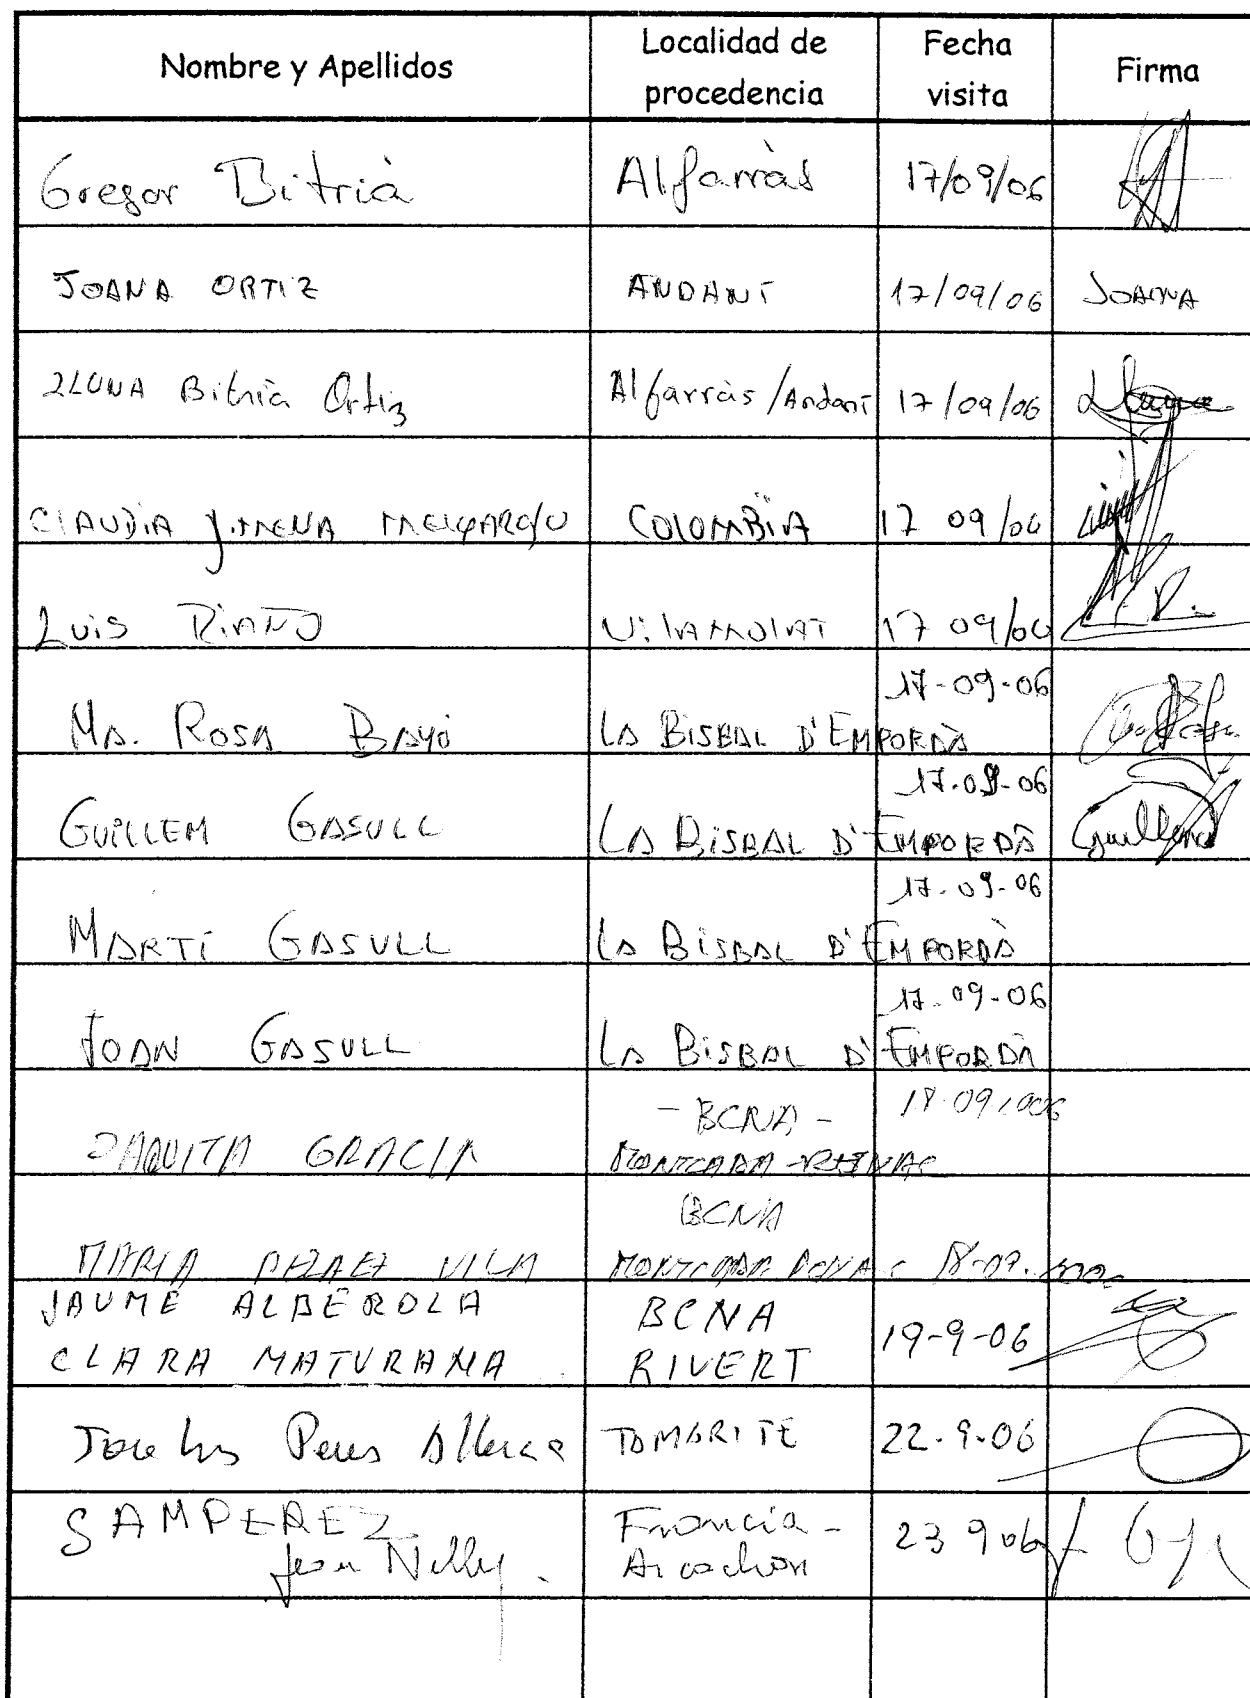 Nombre y Apellidos Localidad de procedencia Fecha visita Firma
Gregor Bitrià Alfarràs 17/09/06
JOANA ORTIZ ANDANÍ 17/09/06 JOANNA
LLUNA Bitrià Ortiz Alfarràs/Andaní 17/09/06
CLAUDIA JIMENA MELGAREJO COLOMBIA 17 09/06
Luis RIAÑO VILAMOLAT 17 09/06
Ma. ROSA BAYÓ LA BISBAL D'EMPORDÀ 17-09-06
GUILLEM GASULL LA BISBAL D'EMPORDÀ 17.09-06 Guillem
MARTÍ GASULL LA BISBAL D'EMPORDÀ 17.09-06
JOAN GASULL LA BISBAL D'EMPORDÀ 17-09-06
PAQUITA GRACIA - BCNA - MONTCADA 18-09
MARIA VILA BCNA MONTCADA 18-09
JAUME ALBEROLA BCNA 19-9-06
CLARA MATURANA RIVERT
Jose Luis Peres TAMARITE 22-9-06
SAMPEREZ Francia -
Jean Nelly. Arcachon 23 9 06